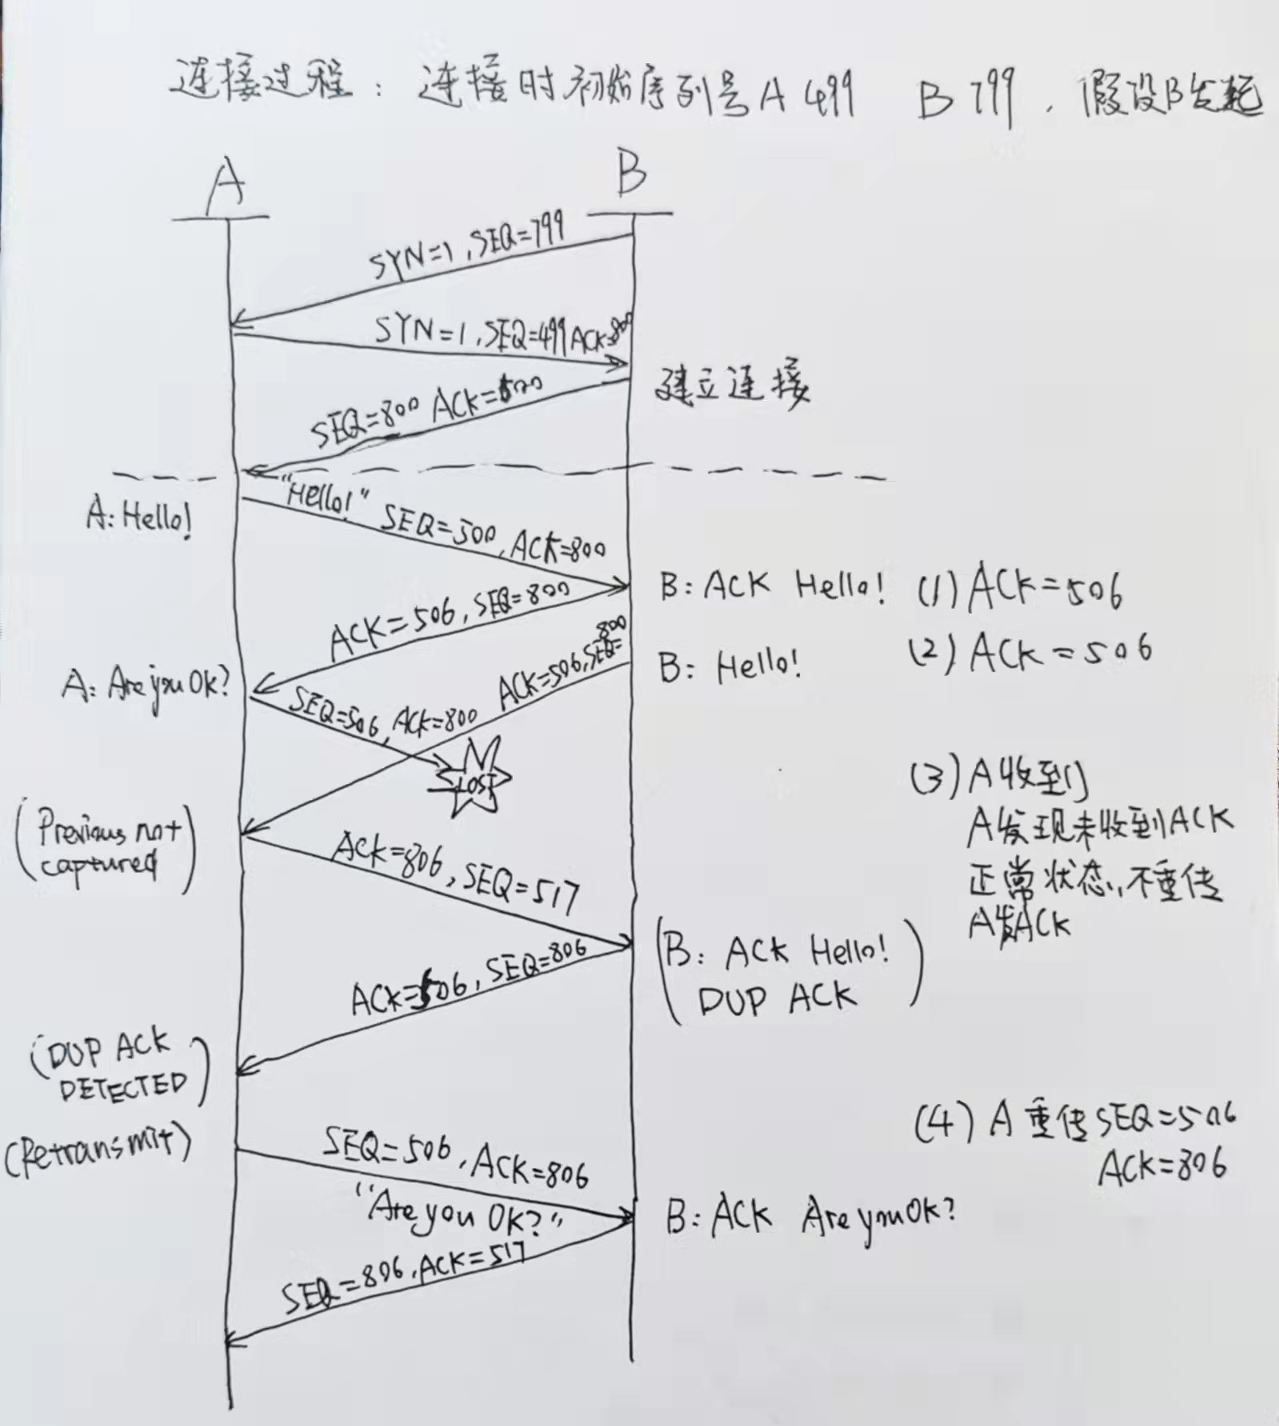 连接过程：连接时初始序列号A 499 B 799，假设B发起
A B
SYN=1,SEQ=799
SYN=1,SEQ=499 ACK=800
建立连接
SEQ=800 ACK=500
"Hello!" SEQ=500, ACK=800
A: Hello!
B: ACK Hello! (1) ACK=506
ACK=506, SEQ=800
B: Hello! (2) ACK=506
ACK=506,SEQ=800
A: Are you OK?
SEQ=506, ACK=800
LOST
(3) A收到
A发现未收到ACK
正常状态,不重传
A发ACK
(Previous not
captured)
ACK=806, SEQ=517
(B: ACK Hello!
DUP ACK)
ACK=506, SEQ=806
(DUP ACK
DETECTED)
(Retransmit)
(4) A重传SEQ=506
ACK=806
SEQ=506, ACK=806
"Are you OK?"
B: ACK Are you OK?
SEQ=806, ACK=517